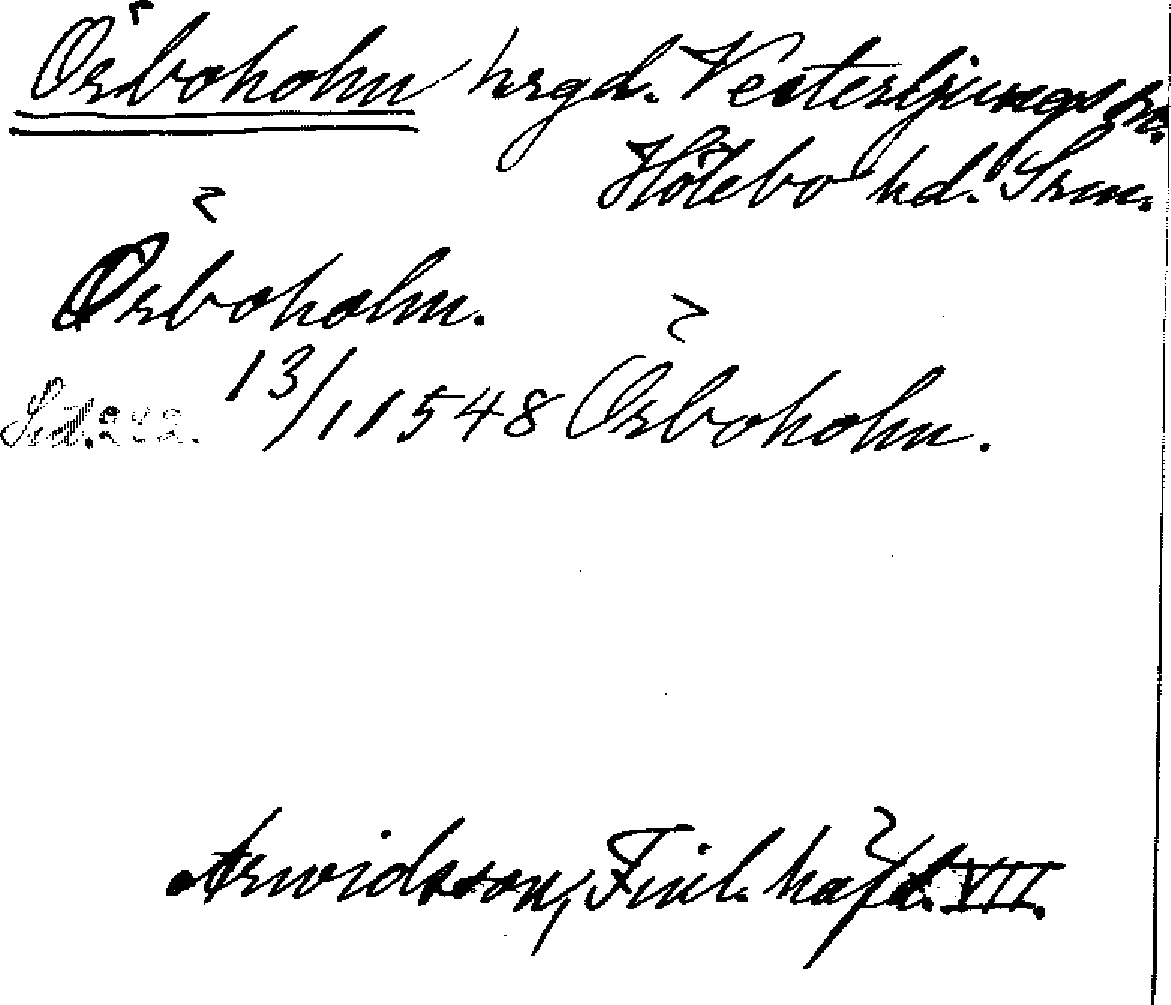 Örboholm hrgd. Vesterljungs sn.
Hölebo hd. Srm.
Örboholm.
Sid. 242. 13/11 1548 Örboholm.
Arwidsson, Finl. häfd. VII.